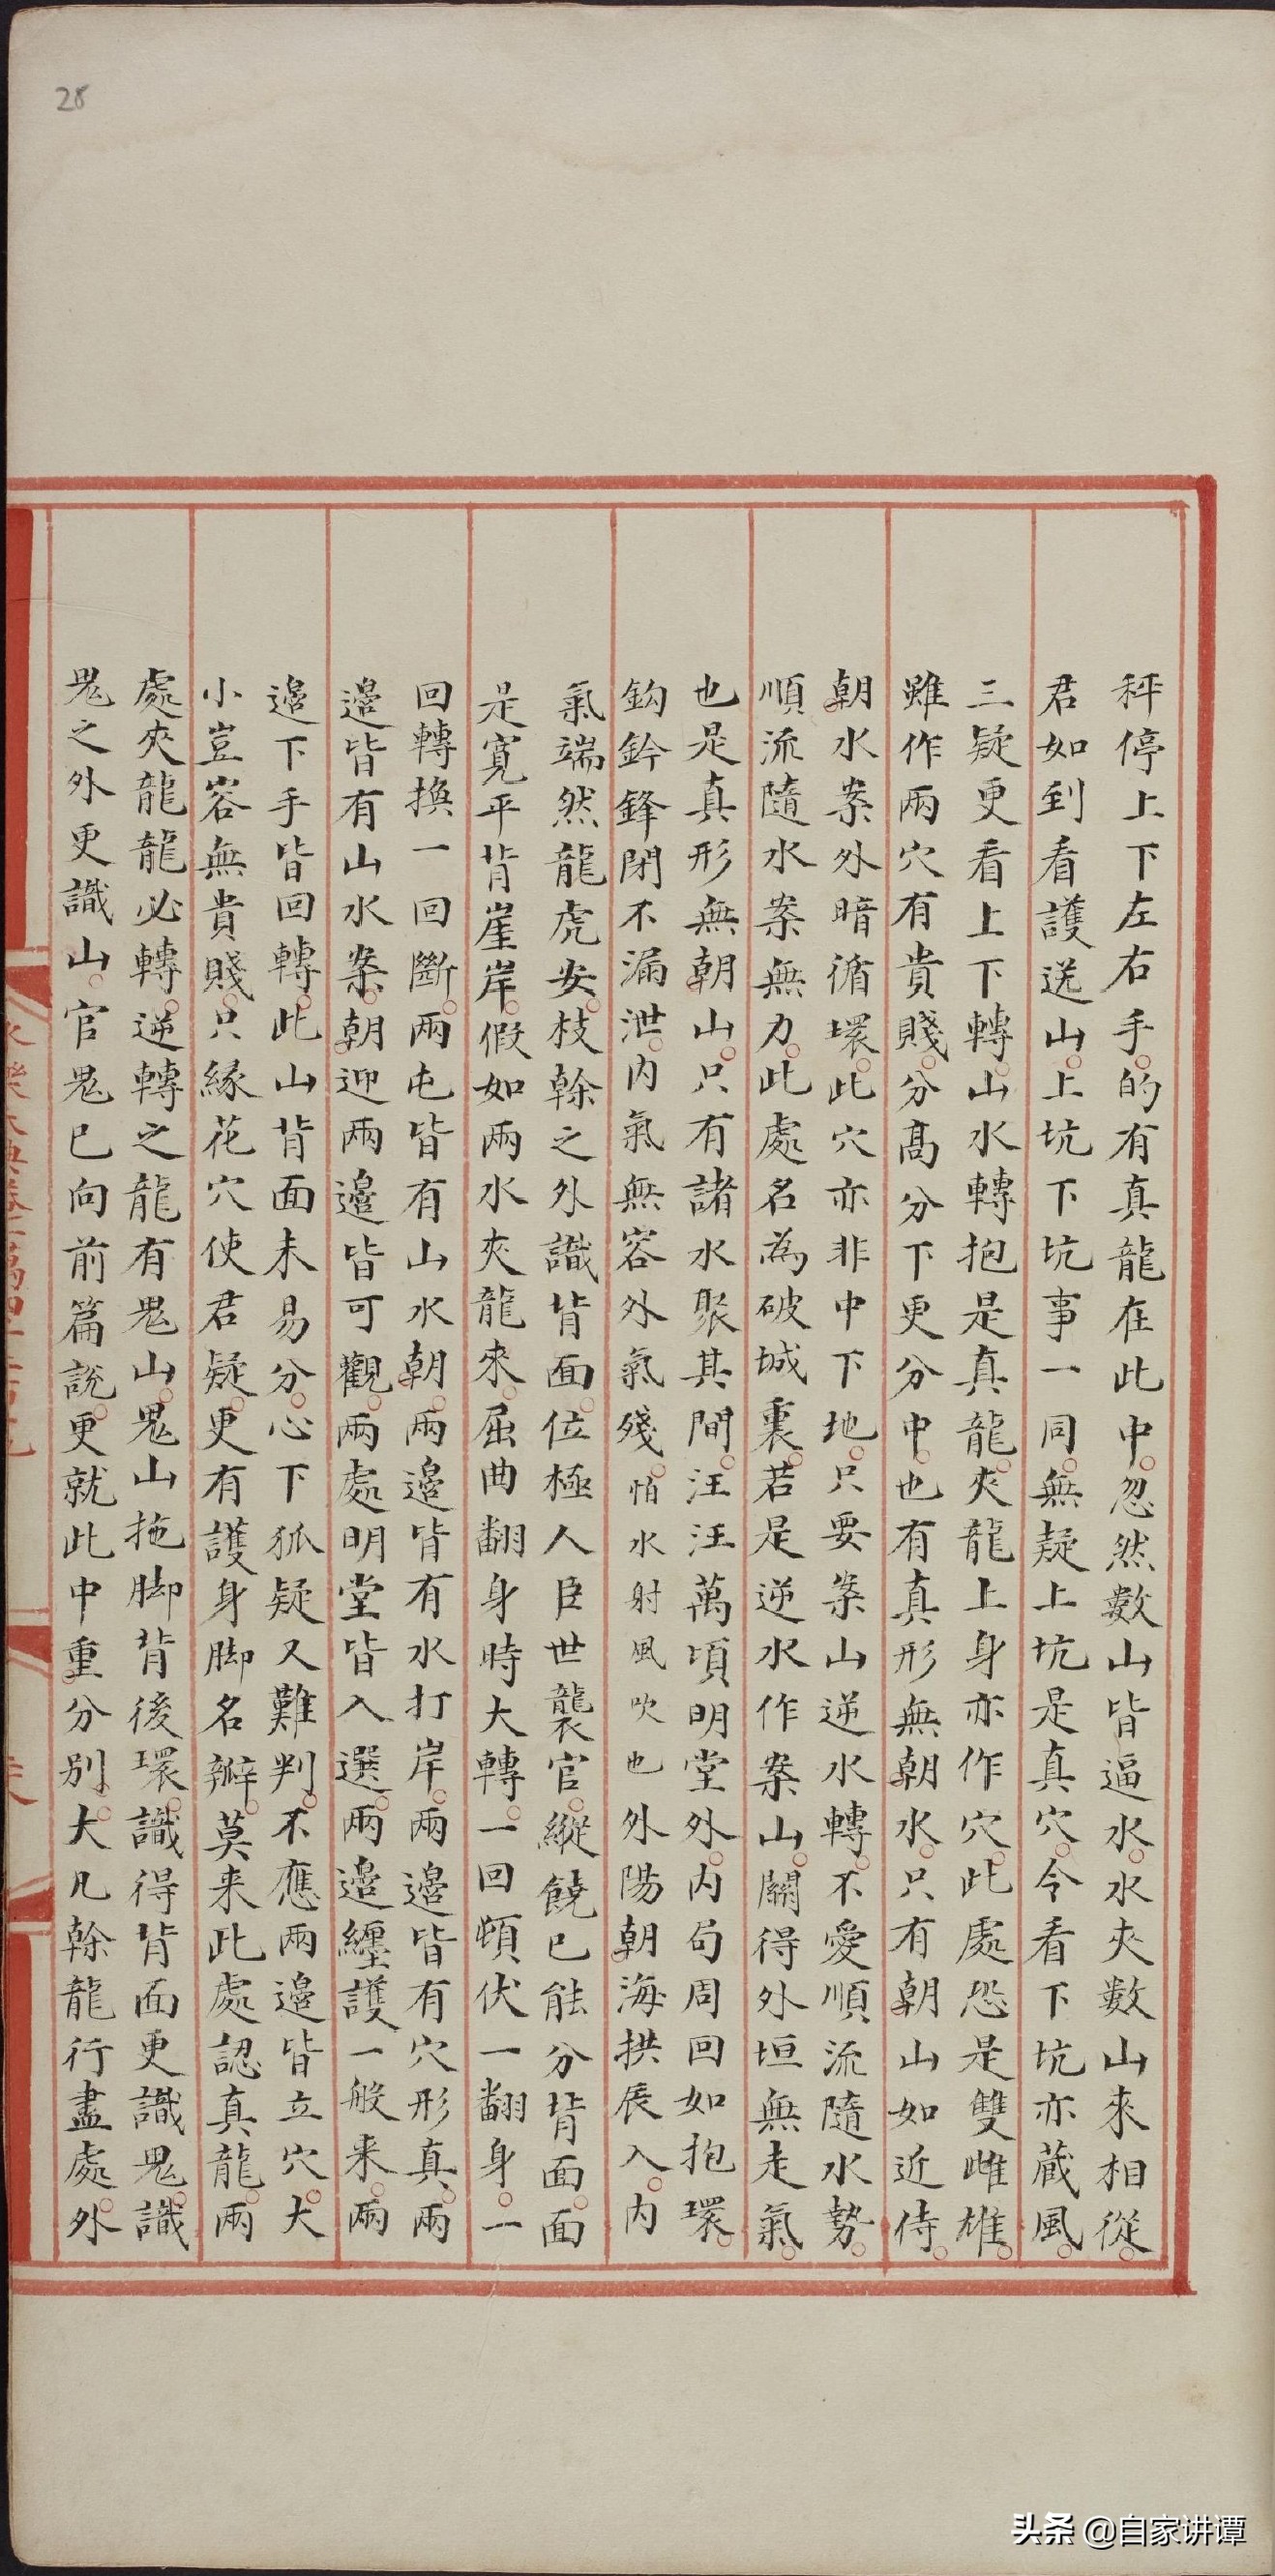 28
秤停上下左右手的有真龍在此中忽然數山皆逼水水夾數山來相從
君如到看護送山上坑下坑事一同無疑上坑是真穴令看下坑亦藏風
三疑更看上下轉山水轉抱是真龍夾龍上身亦作穴此處恐是雙雌雄
雖作兩穴有貴賤分高分下更分中也有真形無朝水只有朝山如近侍
朝水案外暗循環此穴亦非中下地只要案山逆水轉不愛順流隨水勢
順流隨水案無力此處名為破城裏若是逆水作案山關得外垣無走氣
也是真形無朝山只有諸水聚其間汪汪萬頃明堂外內句周回如抱環
鈎鈐鋒閉不漏泄內氣無容外氣殘怕水射風吹也外陽朝海拱辰入內
氣端然龍虎安枝幹之外識背面位極人臣世襲官縱饒已能分背面面
是寬平背崖岸假如兩水夾龍來屈曲翻身時大轉一回頓伏一翻身一
回轉換一回斷兩屯皆有山水朝兩邉皆有水打岸兩邉皆有穴形真兩
邉皆有山水案朝迎兩邉皆可觀兩處明堂皆入選兩邉纏護一般来兩
邉下手皆回轉此山背面未易分心下狐疑又難判不應兩邉皆立穴大
小豈容無貴賤只緣花穴使君疑更有護身脚名辦莫来此處認真龍兩
處夾龍龍必轉逆轉之龍有鬼山鬼山拖脚背後環識得背面更識鬼識
鬼之外更識山官鬼已向前篇說更就此中重分別大凡幹龍行盡處外
头条 @自家讲谭